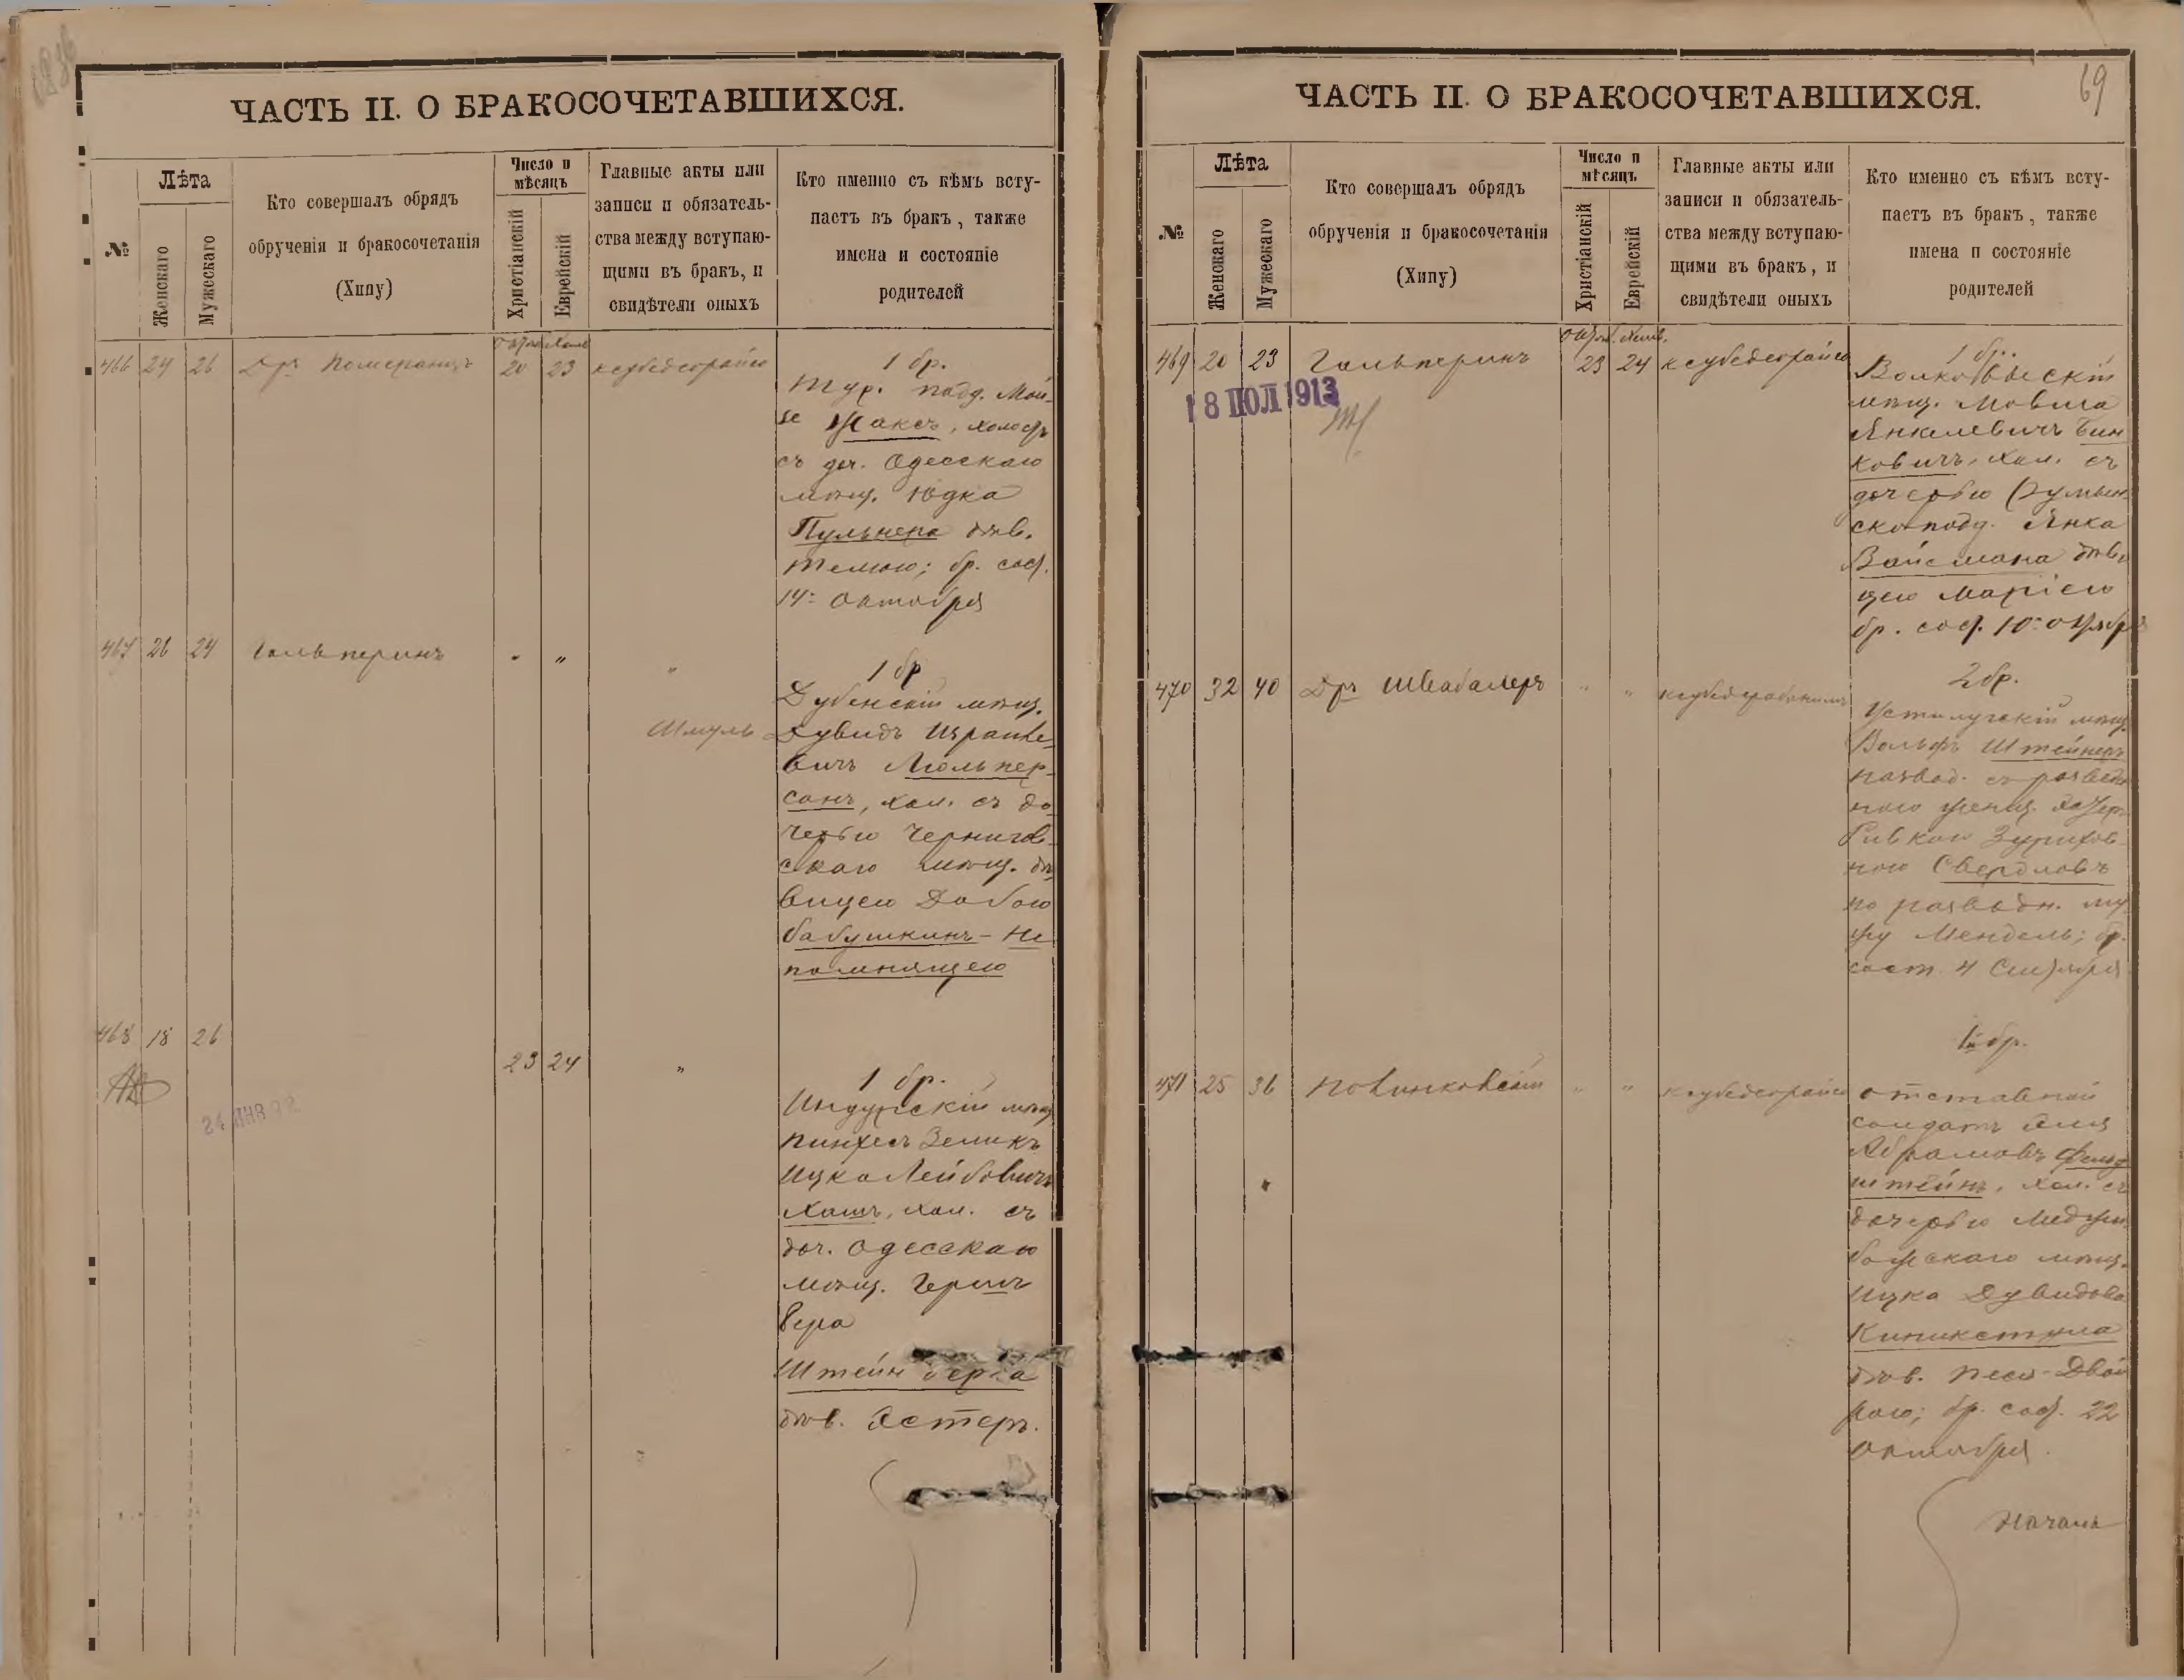 ЧАСТЬ II. О БРАКОСОЧЕТАВШИХСЯ.
№
Лѣта
Женскаго
Мужескаго
Кто совершалъ обрядъ
обрученія и бракосочетанія
(Хипу)
Число и
мѣсяцъ
Христіанскій
Еврейскій
Главные акты или
записи и обязатель-
ства между вступаю-
щими въ бракъ, и
свидѣтели оныхъ
Кто именно съ кѣмъ всту-
паетъ въ бракъ, также
имена и состояніе
родителей
466 24 26 Др. Померанцъ 20 23
1 бр.
Тур. подд. Мой-
се Жаксъ, холост
съ доч. Одесскаго
мѣщ. Юдка
Пульнера дѣв.
Темою; бр. сост.
14 Октября
467 26 24 Гальперинъ " " "
1 бр
Дубенскій мѣщ.
Шмуль Дувидъ Израиле-
вичъ Мольпер-
сонъ, хол. съ до-
черью Чернигов-
скаго мѣщ. дѣ-
вицею Добою
Бабушкинъ-Не
помнящею
468 18 26 23 24 "
24 ЯНВ 92
1 бр.
Индурскій мѣщ
Пинхесъ Зеликъ
Ицко Лейбовичъ
Хашъ, хол. съ
доч. Одесскаго
мѣщ. Герша
Бера
Штейнберга
дѣв. Эстеръ.
69
ЧАСТЬ II. О БРАКОСОЧЕТАВШИХСЯ.
№
Лѣта
Женскаго
Мужескаго
Кто совершалъ обрядъ
обрученія и бракосочетанія
(Хипу)
Число и
мѣсяцъ
Христіанскій
Еврейскій
Главные акты или
записи и обязатель-
ства между вступаю-
щими въ бракъ, и
свидѣтели оныхъ
Кто именно съ кѣмъ всту-
паетъ въ бракъ, также
имена и состояніе
родителей
469 20 23 Гальперинъ 23 24
18 ІЮЛ 1913
1 бр.
Волковыскій
мѣщ. Мовша
Янкелевичъ Бин
ковичъ, хол. съ
дочерью Румын-
скоподд. Янка
Вайсмана дѣви
цею Маріею
бр. сост. 10 октября
470 32 40 Др. Швабахеръ " "
2 бр.
Устилугскій мѣщ.
Вольфъ Штейнеръ
развод. съ разведен
ною
Ривкою
ною Свердловъ
по разводн. му-
жу Мендель; бр.
сост. 4 Сентября
1й бр.
471 25 36 Новинковскій " "
отставной
солдатъ Элія
Абрамовъ Фельд
штейнъ, хол. съ
дочерью Меджи
божскаго мѣщ.
Ицка Дувидова
Киникстула
дѣв. Песя-Двой
рою; бр. сост. 22
октября.